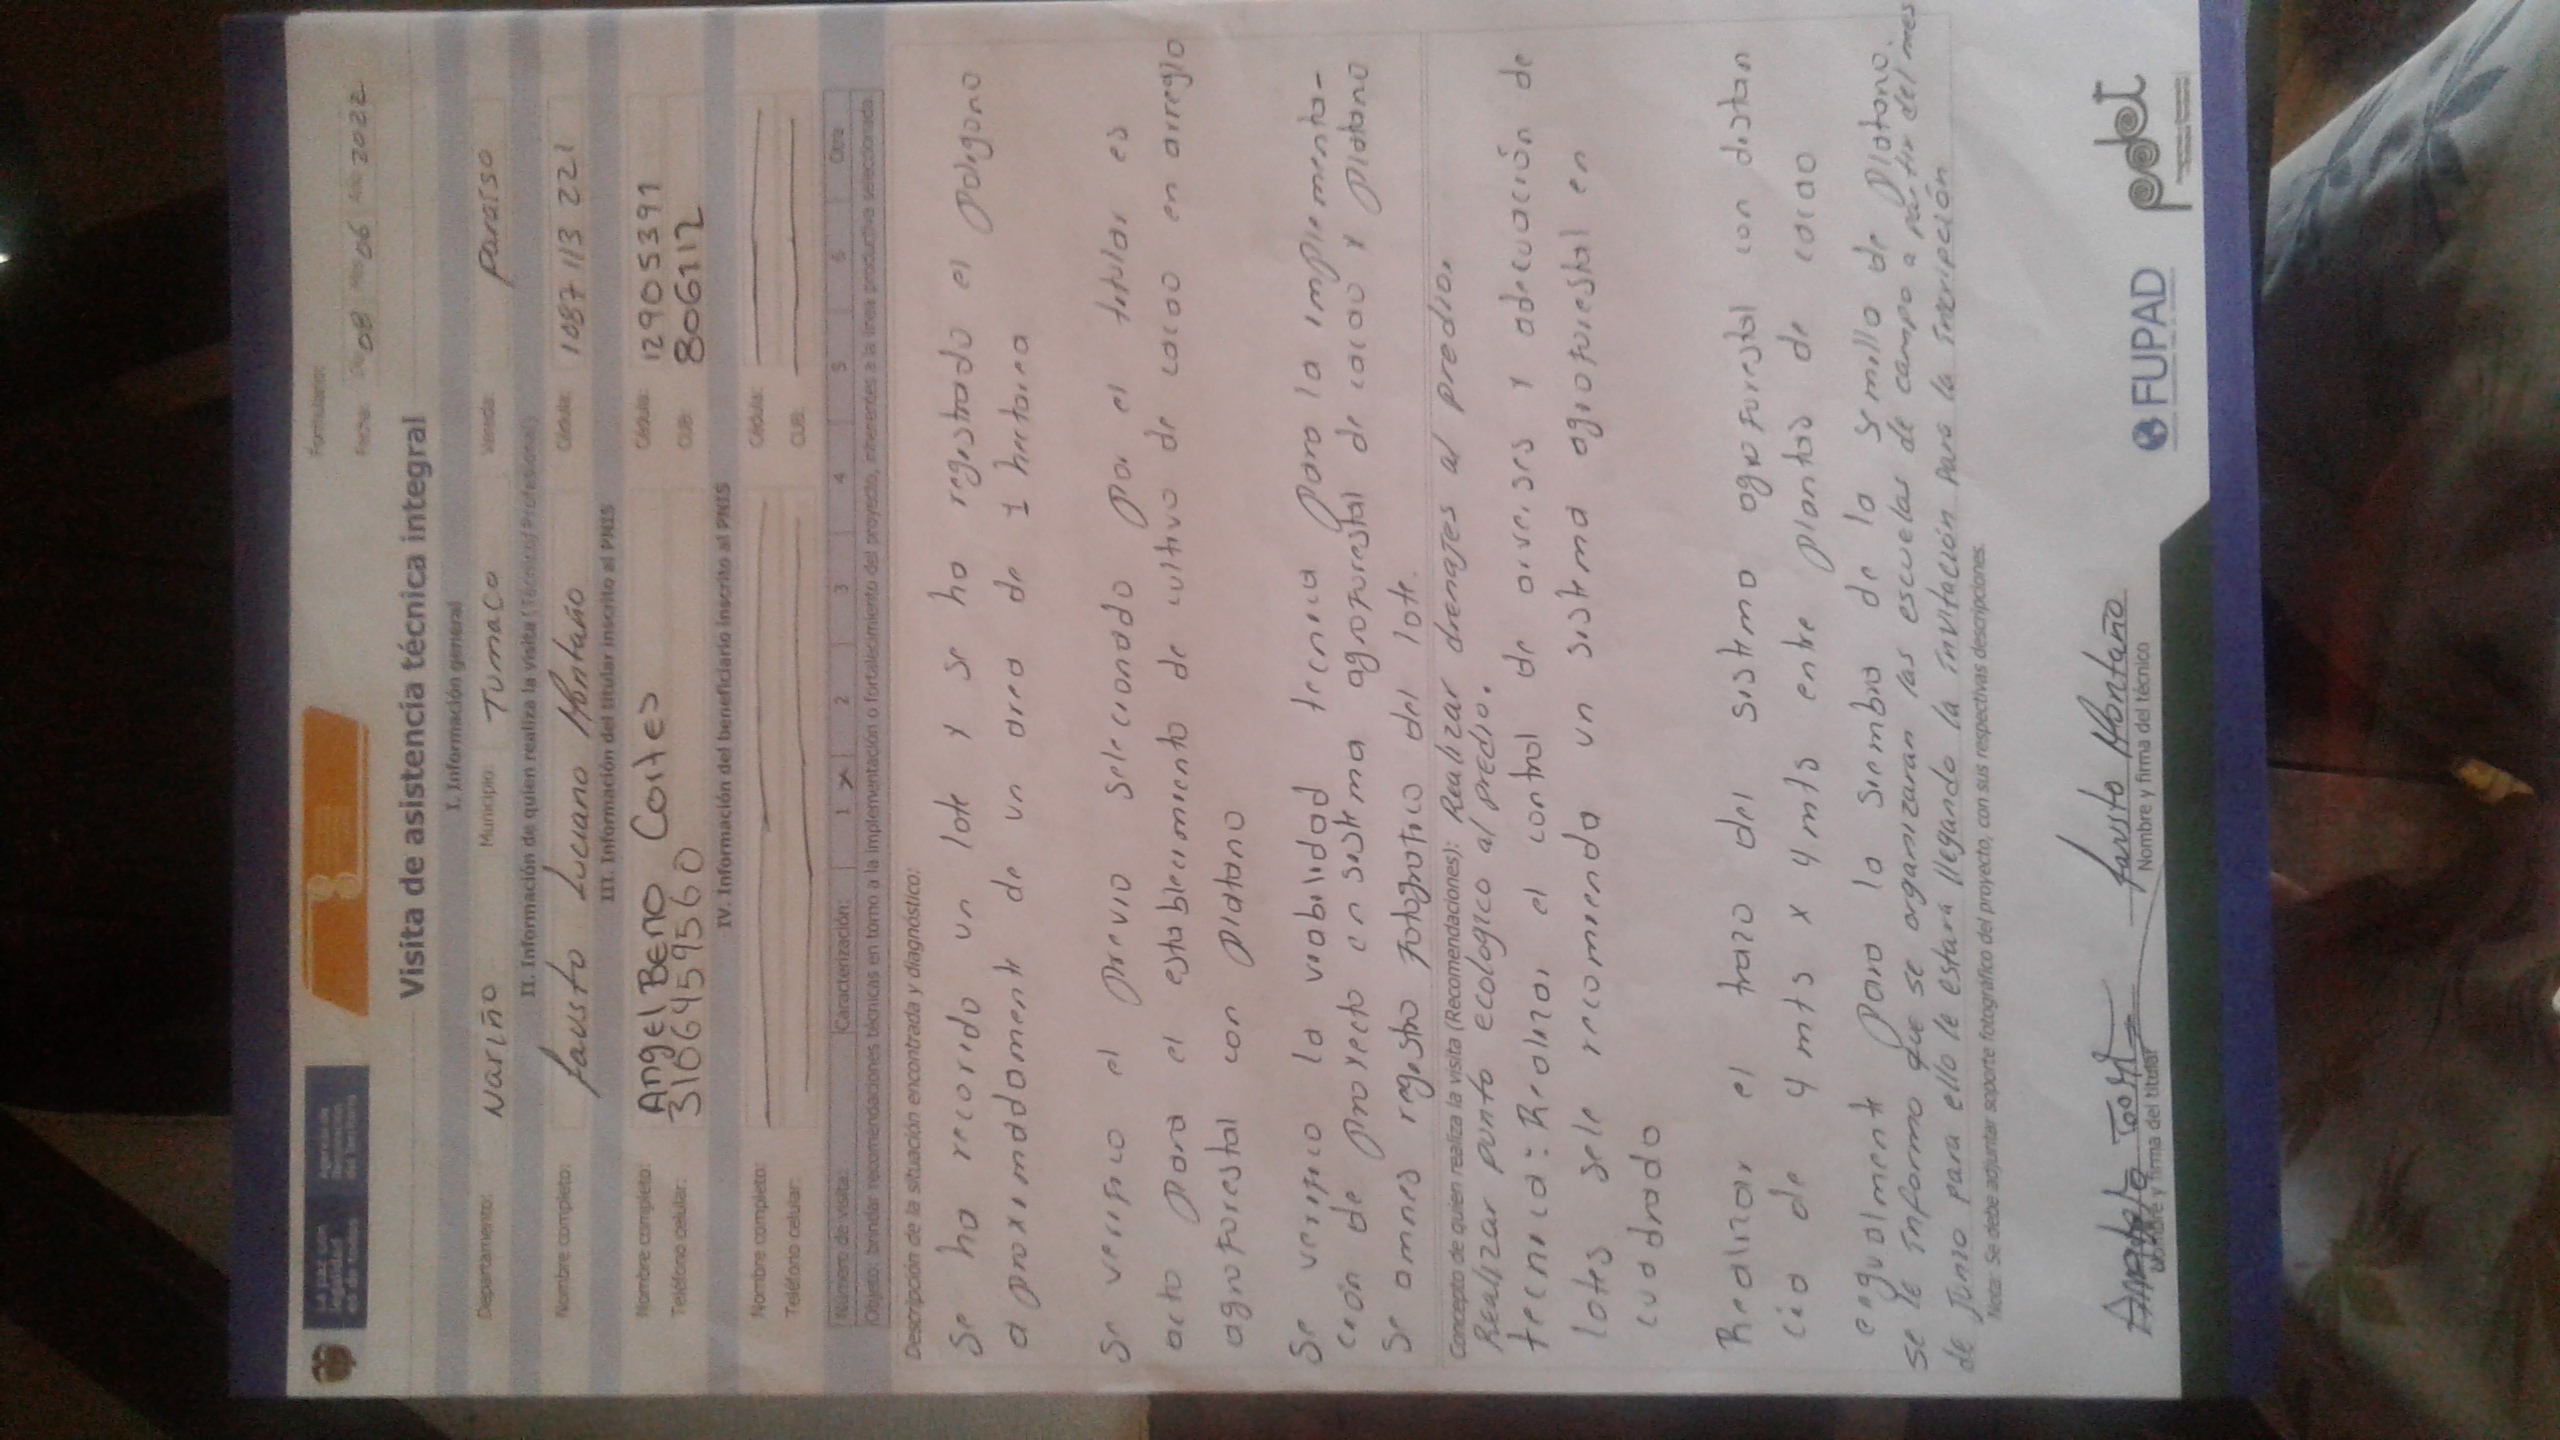 Formulario:
Fecha: Día 08 Mes 06 Año 2022
Visita de asistencia técnica integral
I. Información general
Departamento: Nariño Municipio: Tumaco Vereda: Paraiso
II. Información de quien realiza la visita (Técnico/Profesional)
Nombre completo: Fausto Luciano Montaño Cédula: 1087 113 221
III. Información del titular inscrito al PNIS
Nombre completo: Angel Beno Cortes Cédula: 12905391
Teléfono celular: 3106459560 CUB: 806112
IV. Información del beneficiario inscrito al PNIS
Nombre completo: Cédula:
Teléfono celular: CUB:
Número de visita: Caracterización: 1 X 2 3 4 5 6 Otra
Objeto: brindar recomendaciones técnicas en torno a la implementación o fortalecimiento del proyecto, inherentes a la línea productiva seleccionada
Descripción de la situación encontrada y diagnóstico:
Se ha recorrido un lote y se ha regestrado el poligono
aproximadamente de un area de 1 hectarea
Se verifico el previo seleccionado por el titular es
acto para el establecimiento de cultivo de cacao en arreglo
agroforestal con platano
Se verifico la viabilidad tecnica para la implementa-
ción de proyecto en sistema agroforestal de cacao y platano
Se omnes regestro fotografico del lote.
Concepto de quien realiza la visita (Recomendaciones): Realizar drenajes al predio.
Realizar punto ecologico al predio.
tecnica: Realizar el control de arverses y adecuación de
lotes sele recomienda un sistema agroforestal en
cuadrado
Realizar el trazo del sistema agroforestal con distan
cia de 4 mts x 4 mts entre plantas de cacao
engualmente para la siembra de la semilla de platano.
se le informo que se organizaran las escuelas de campo a partir del mes
de Junio para ello le estara llegando la invitación para la inscripción
Nota: Se debe adjuntar soporte fotográfico del proyecto, con sus respectivas descripciones.
Fausto Montaño
Nombre y firma del titular
Nombre y firma del técnico
FUPAD
pdet